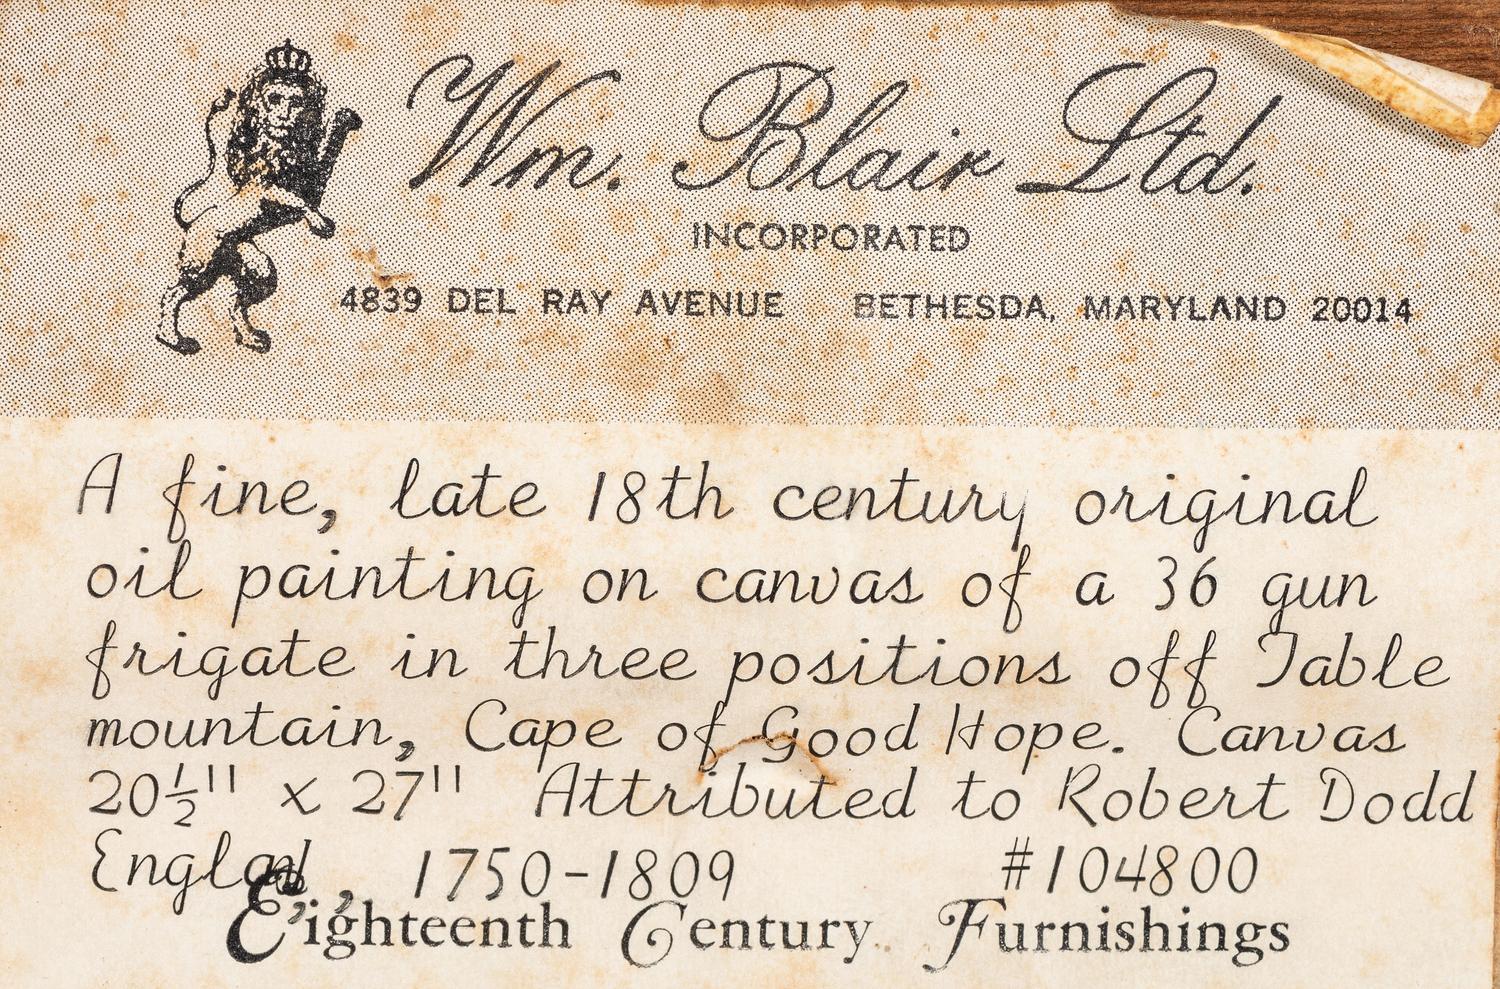 Wm. Blair Ltd.
INCORPORATED
4839 DEL RAY AVENUE BETHESDA, MARYLAND 20014
A fine, late 18th century original
oil painting on canvas of a 36 gun
frigate in three positions off Table
mountain, Cape of Good Hope. Canvas
20½" x 27" Attributed to Robert Dodd
England, 1750-1809 #104800
Eighteenth Century Furnishings